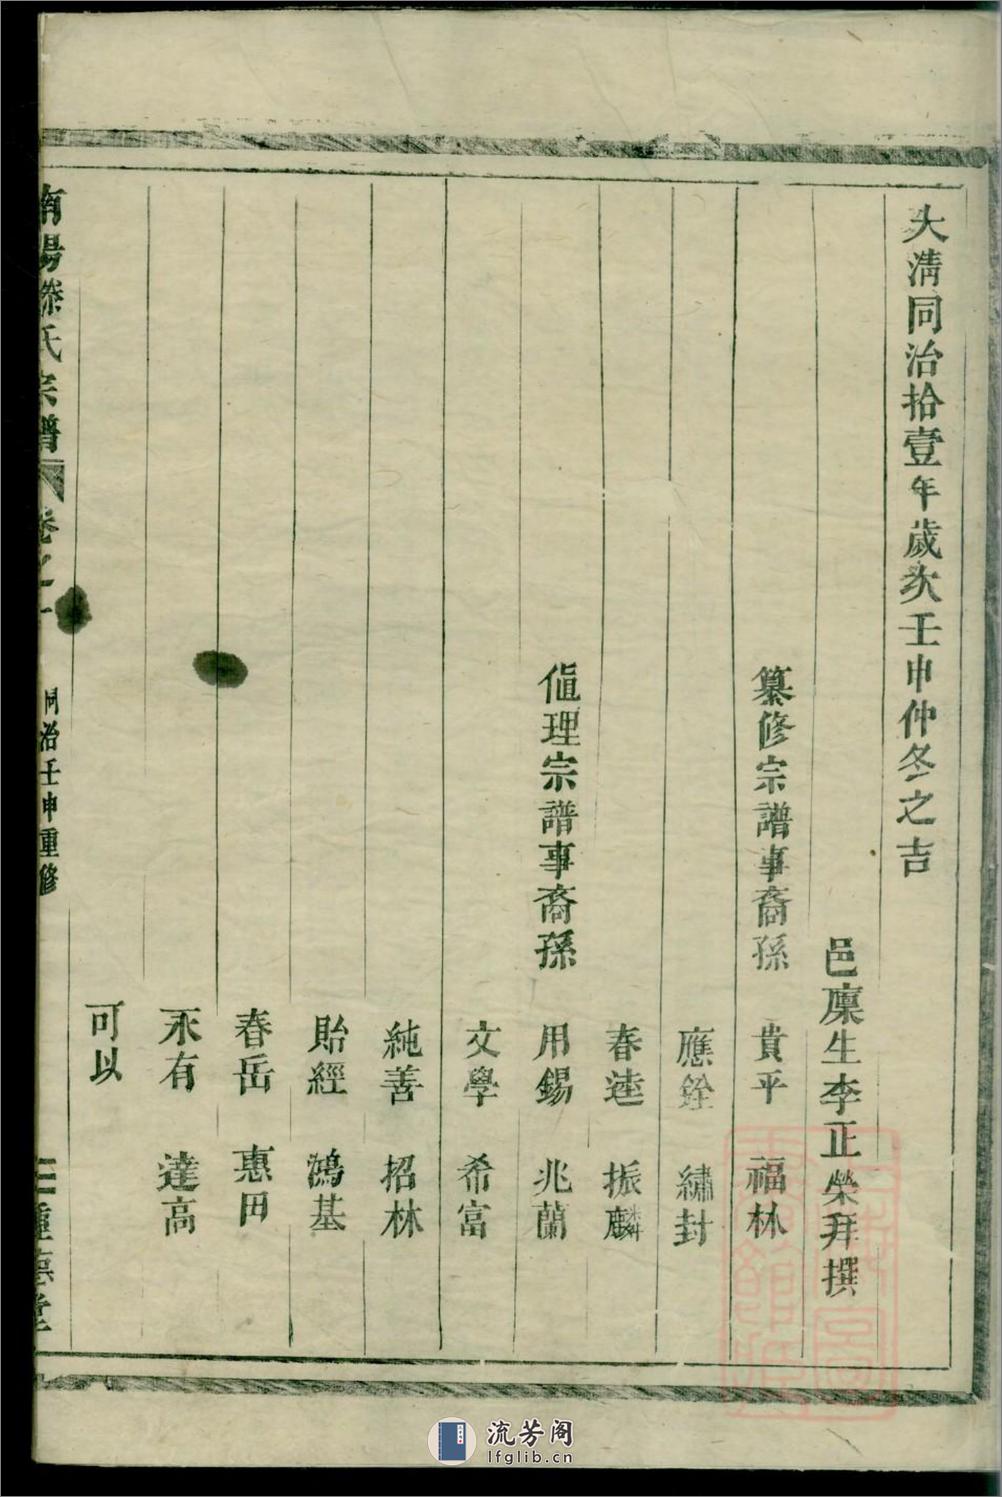 大清同治拾壹年歲次壬申仲冬之吉
邑廩生李正榮拜撰
纂修宗譜事裔孫 貴平 福林
應銓 繡封
春逵 振麟
値理宗譜事裔孫 用錫 兆蘭
文學 希富
純善 招林
貽經 鴻基
春岳 惠田
永有 達高
可以
南陽滕氏宗譜 卷之一 同治壬申重修 三 種德堂
流芳阁
lfglib.cn